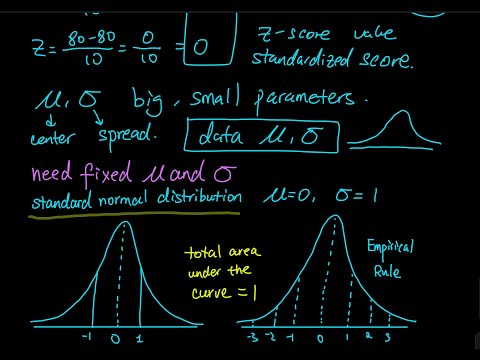 Z = 80-80/10 = 0/10 = 0
Z-score value
standardized score.
μ, σ big, small parameters.
center spread.
data μ, σ
need fixed μ and σ
standard normal distribution μ=0, σ=1
total area
under the
curve = 1
Empirical
Rule
-1 0 1
-3 -2 -1 0 1 2 3